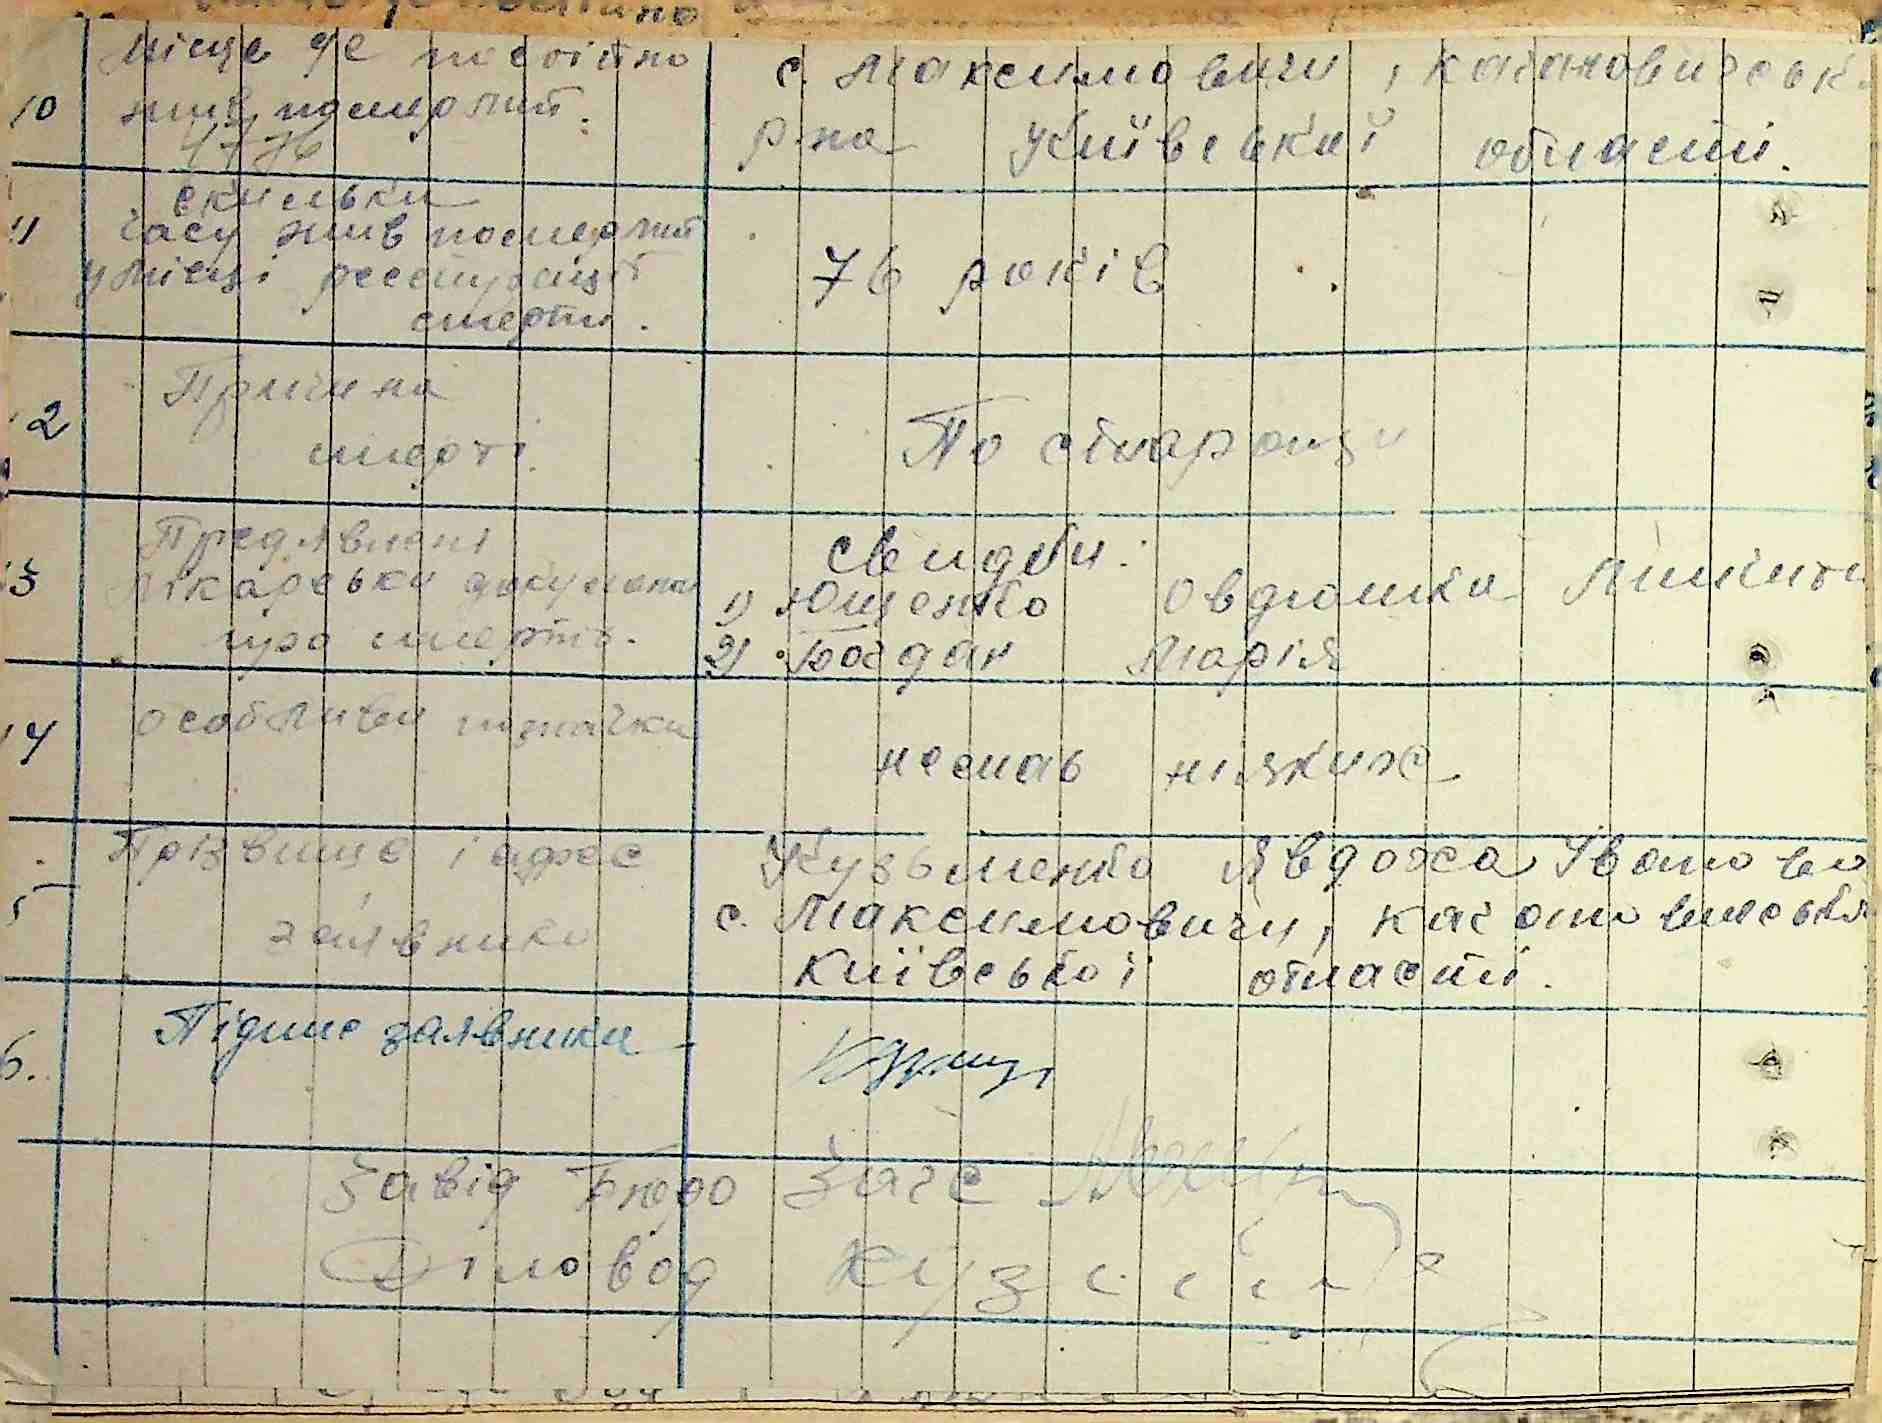 10
Місце де постійно
жив померлий.
с. Максимовичи, Кагановичськ.
р-на Київської области.
11
скильки
часу жив померлий
у місці реєстрації
смерти.
76 років
12
Причина
смерті.
По старости
13
Предявлені
лікарськи документи
про смерть.
Свидки:
1) Ющенко Овдюшка Микити
2) Богдан Марія
14
особливи позначки
немає ніяких
15
Прізвище і адрес
заявника
Кузьменко Явдоха Івановна
с. Максимовичи, Кагановичська
Київської области.
6.
Підпис заявника
Завід Бюро Загс
Діловод